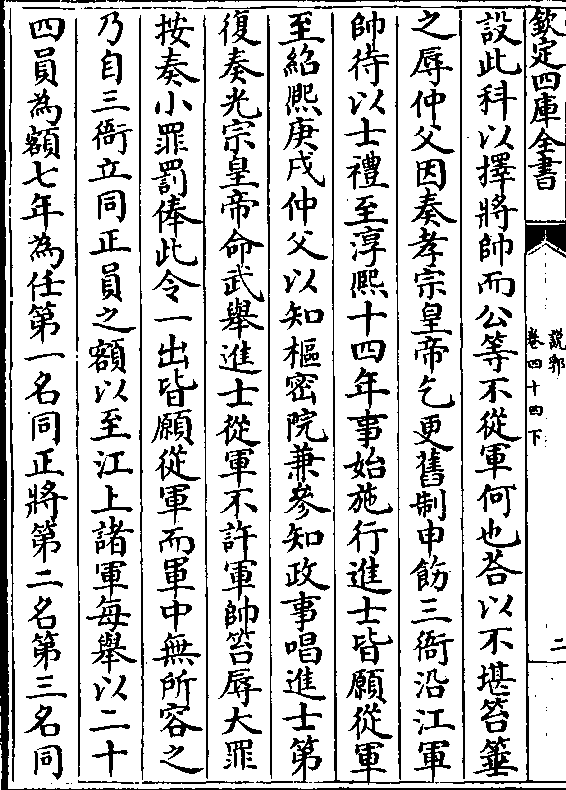 欽定四庫全書
說郛
卷四十四下
二
設此科以擇將帥而公等不從軍何也荅以不堪笞箠
之辱仲父因奏孝宗皇帝乞更舊制申飭三衙沿江軍
帥待以士禮至淳熙十四年事始施行進士皆願從軍
至紹熙庚戌仲父以知樞密院兼參知政事唱進士第
復奏光宗皇帝命武舉進士從軍不許軍帥笞辱大罪
按奏小罪罰俸此令一出皆願從軍而軍中無所容之
乃自三衙立同正員之額以至江上諸軍每舉以二十
四員為額七年為任第一名同正將第二名第三名同